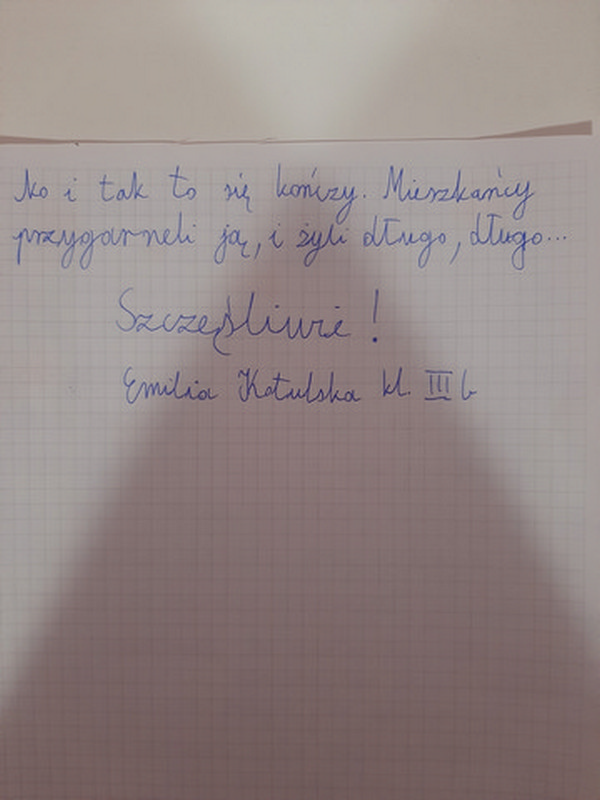 No i tak to się kończy. Mieszkańcy
przygarneli ją, i żyli długo, długo...
Szczęśliwie!
Emilia Kotulska kl. III b